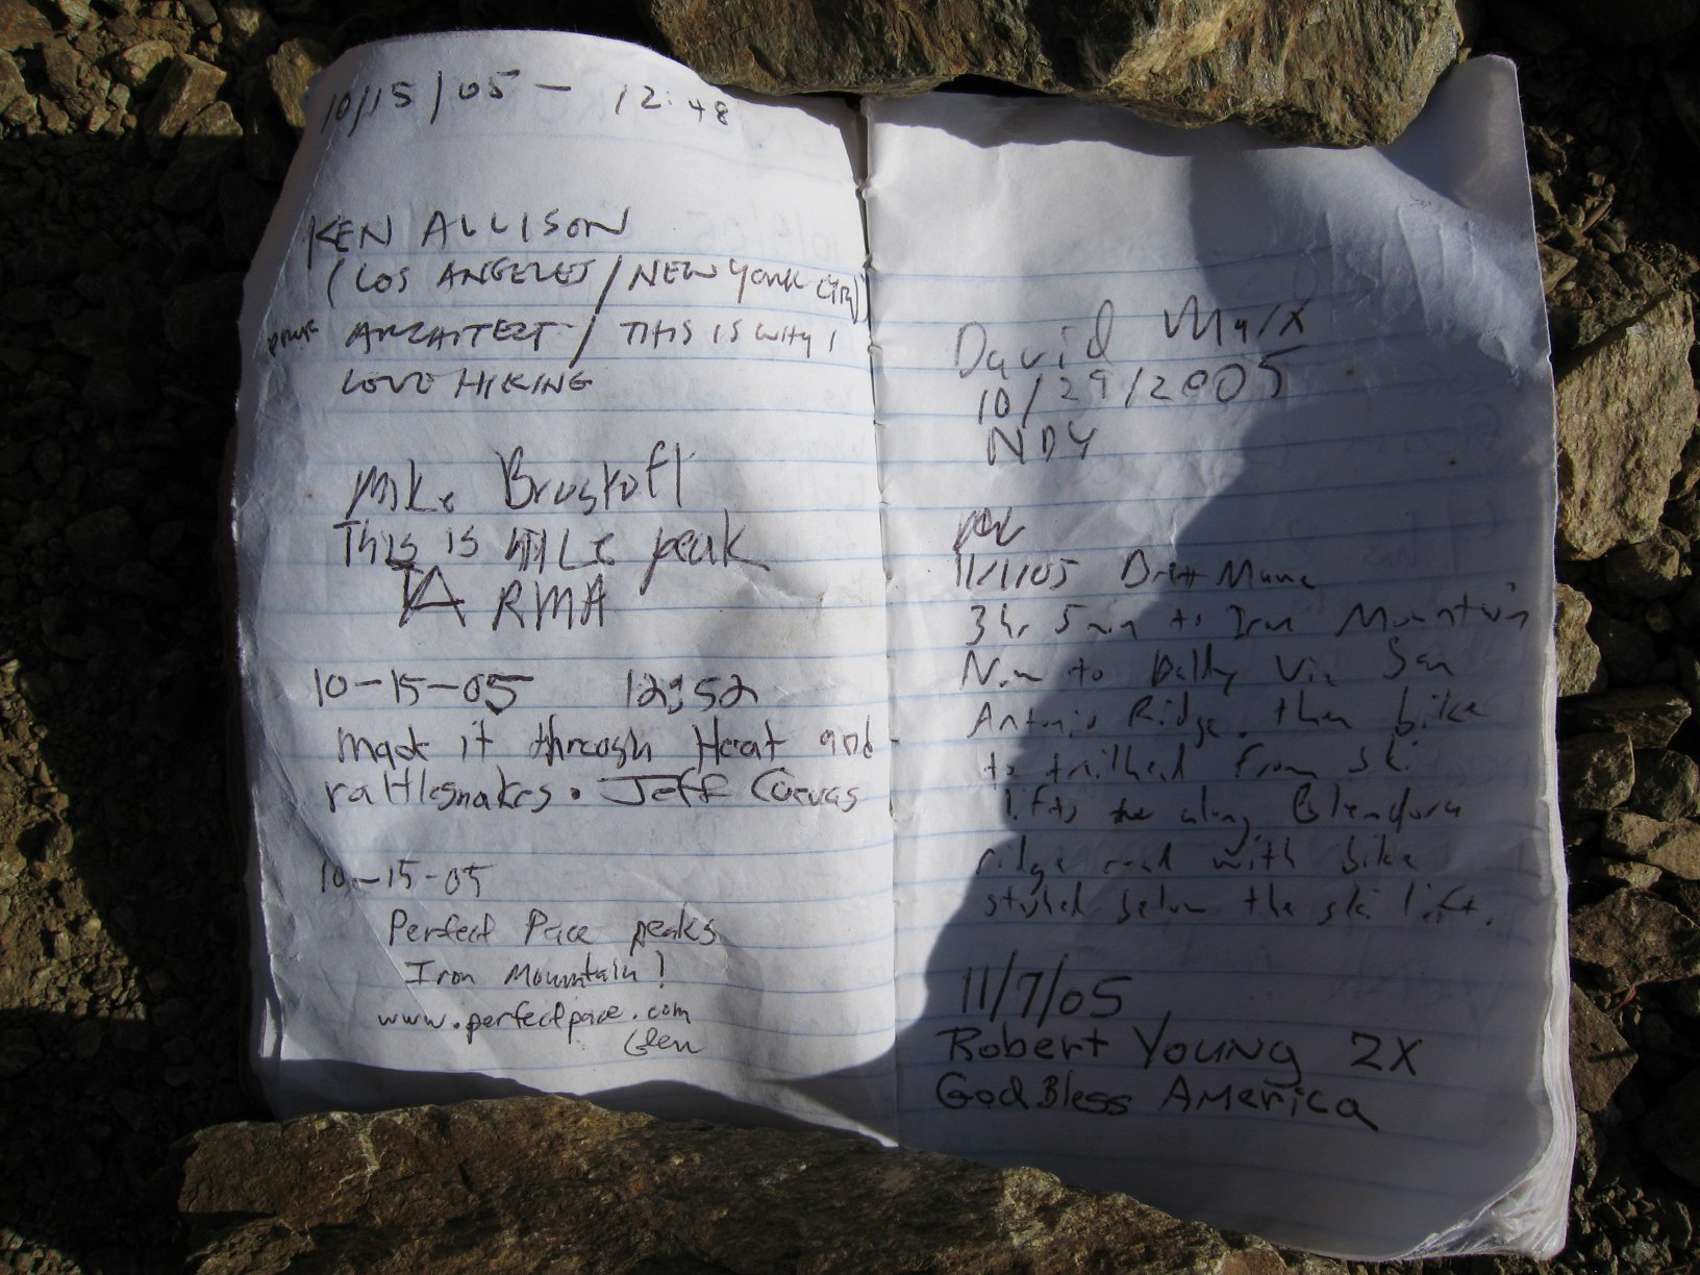 10/15/05 - 12:48
KEN ALLISON
(LOS ANGELES/NEW YORK CITY)
ARCHITECT / THIS IS WHY I
LOVE HIKING
Mike Brustoff
This is peak
RMA
10-15-05 12:52
Made it through Heat and
rattlesnakes. Jeff Cuevas
10-15-05
Perfect Pace peaks
Iron Mountain!
www.perfectpace.com
Glen
David Marx
10/29/2005
NDY
11/1/05 Brett
3 hr 5 min to Iron Mountain
Now to Baldy Via San
Antonio Ridge. then bike
to trailhead from ski
lifts along Glendora
ridge road with bike
stashed below the ski lift.
11/7/05
Robert Young 2X
God Bless America